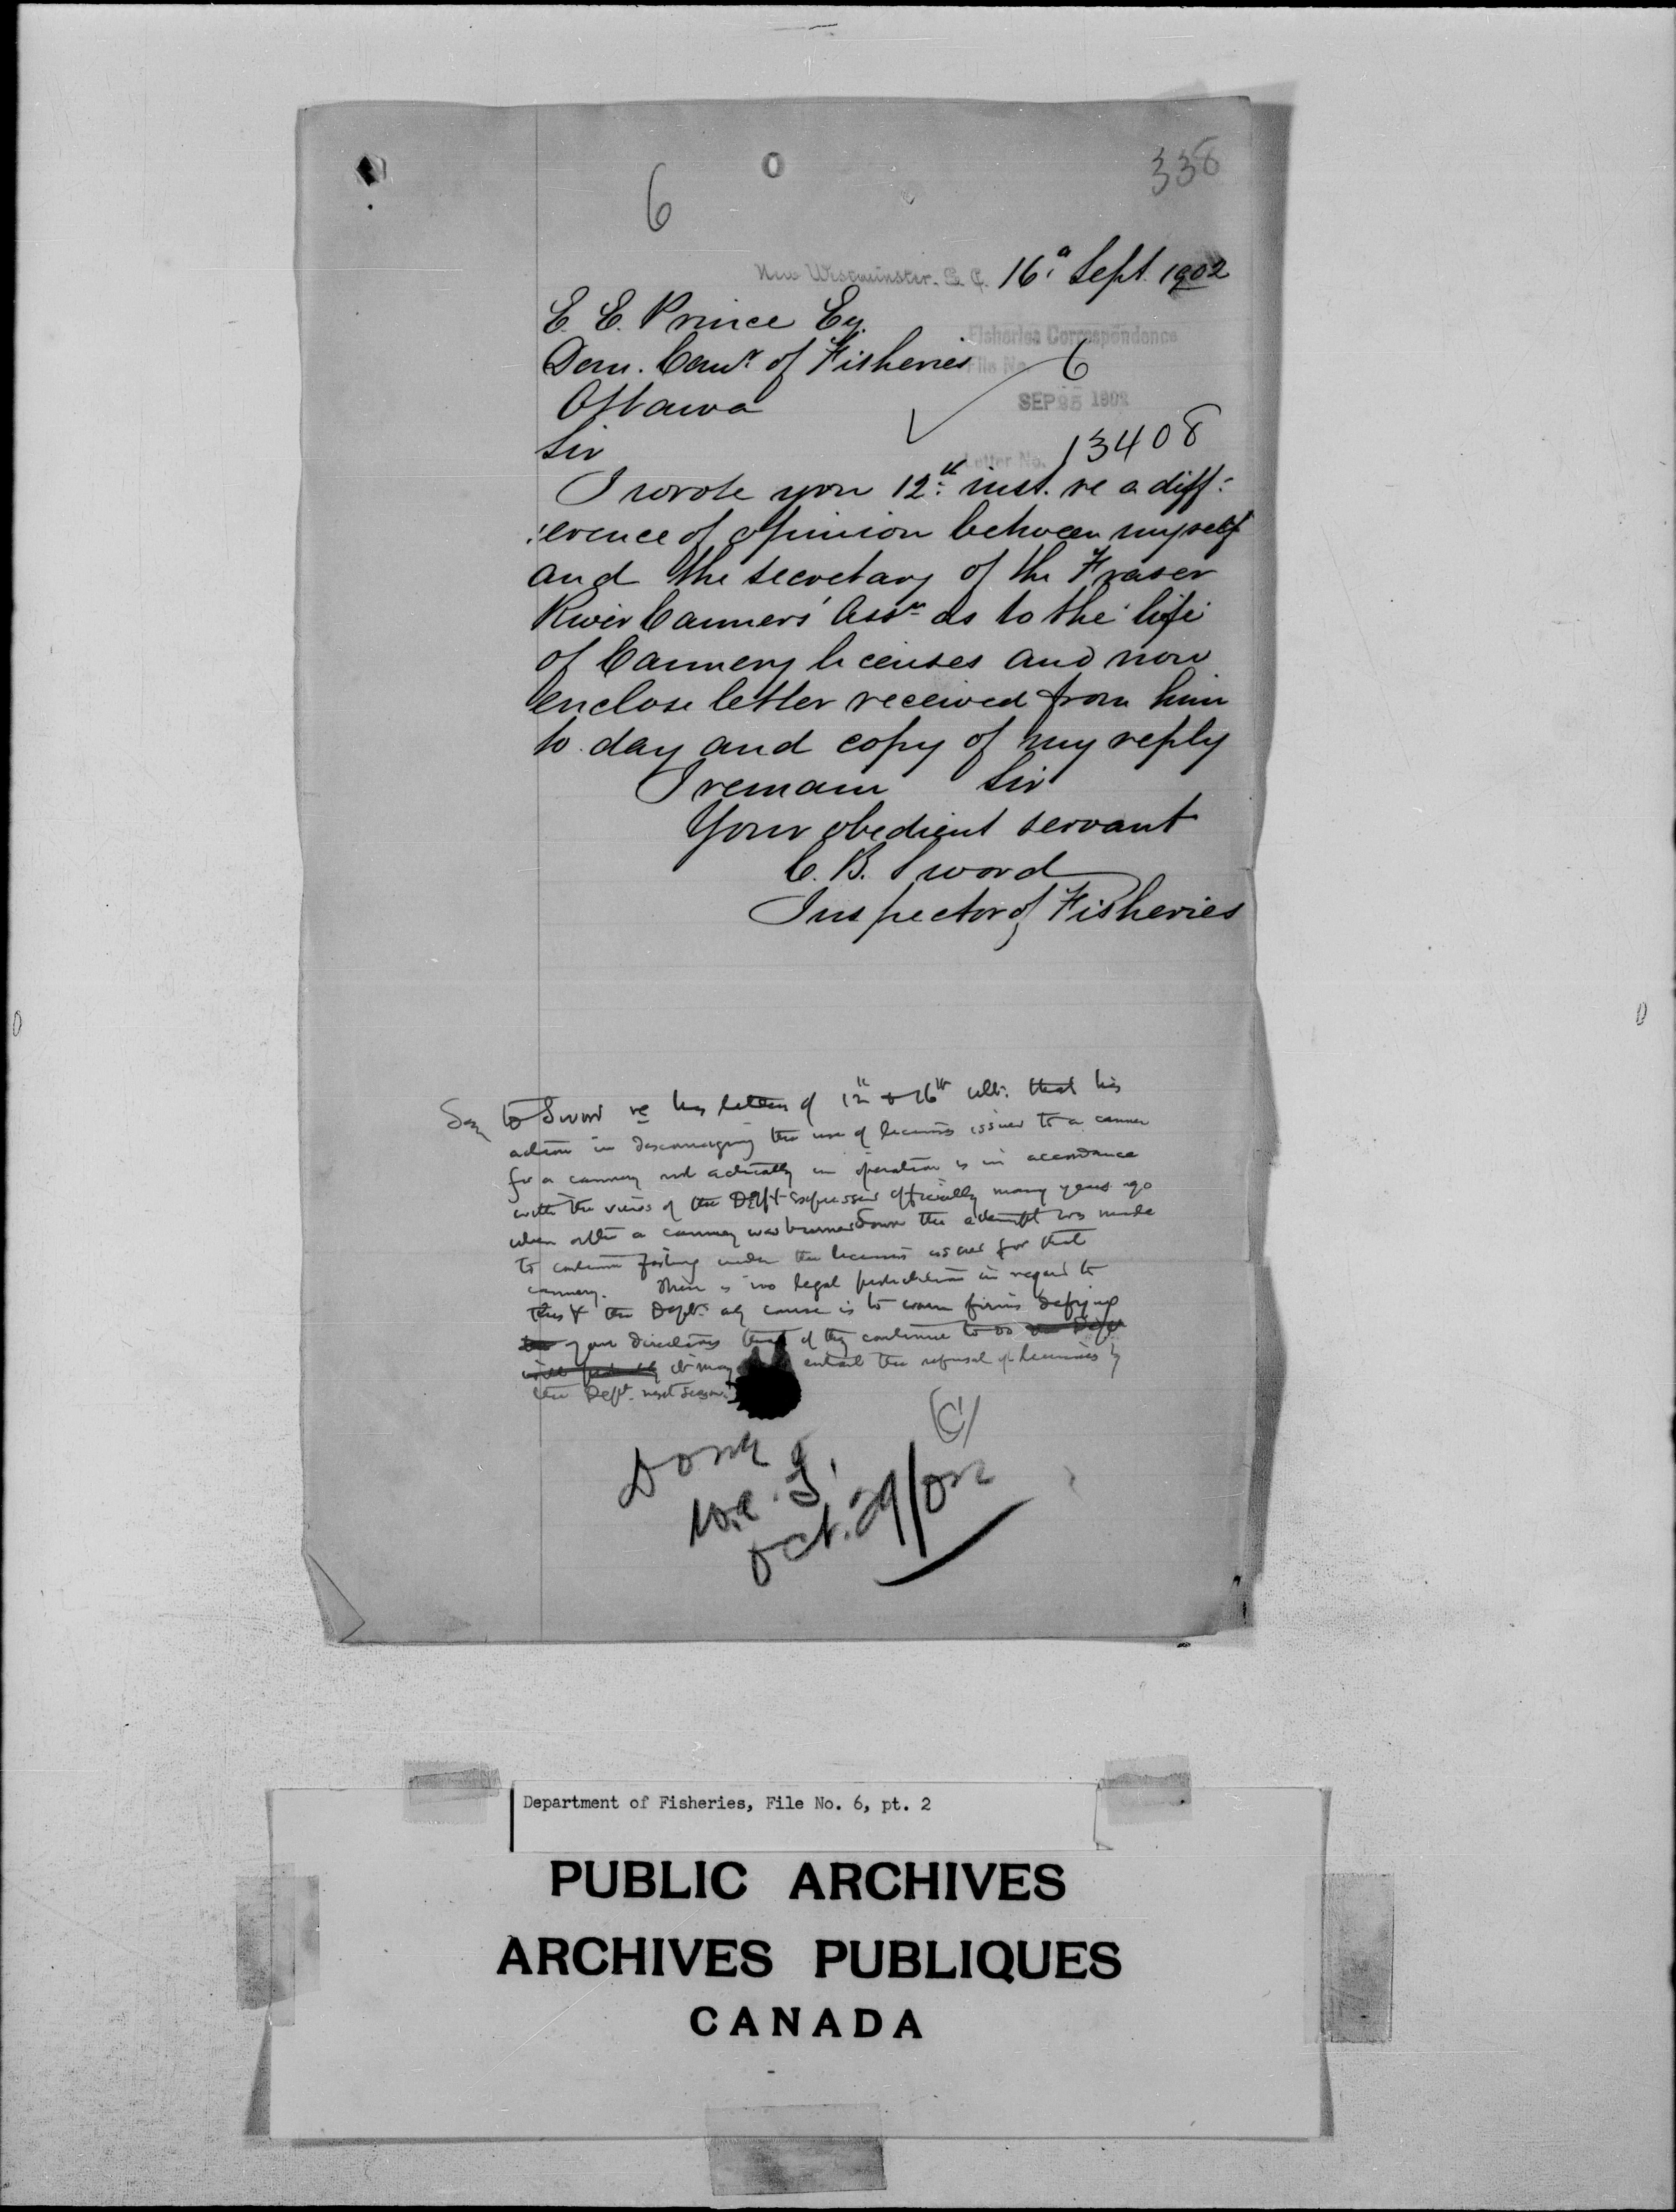 6
338
New Westminster. B. C. 16th Sept. 1902
E. E. Prince Esq.
Dom. Comr. of Fisheries
Fisheries Correspondence
File No. 6
Ottawa
SEP 25 1902
Sir
Letter No. 13408
I wrote you 12th inst. re a diff:
:erence of opinion between myself
and the secretary of the Fraser
River Canners' Assn as to the life
of Cannery licenses and now
enclose letter received from him
to day and copy of my reply
I remain Sir
Your obedient servant
C. B. Sword
Inspector of Fisheries
Say to Sword re his letters of 12th & 16th ult: that his
action in discouraging the use of licenses issued to a canner
for a cannery not actually in operation is in accordance
with the views of the Dept expressed officially many years ago
when after a cannery was burned down the attempt was made
to continue fishing under the licenses issued for that
cannery. There is no legal prohibition in regard to
this & the Dept's only course is to warn firms defying
your directions that if they continue to do
it may entail the refusal of licenses by
the Dept. next season.
(C)
Done
Oct. 29/02
Department of Fisheries, File No. 6, pt. 2
PUBLIC ARCHIVES
ARCHIVES PUBLIQUES
CANADA